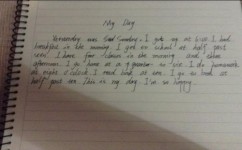 My Day
Yesterday was Sunday. I get up at six. I had
breakfast in the morning. I get to school at half past
I have four class in the morning and three
afternoon. I go home at a quarter to six. I do homework
at eight o'clock. I read book at nine. I go to bed at
half past ten. This is my day. I'm so happy